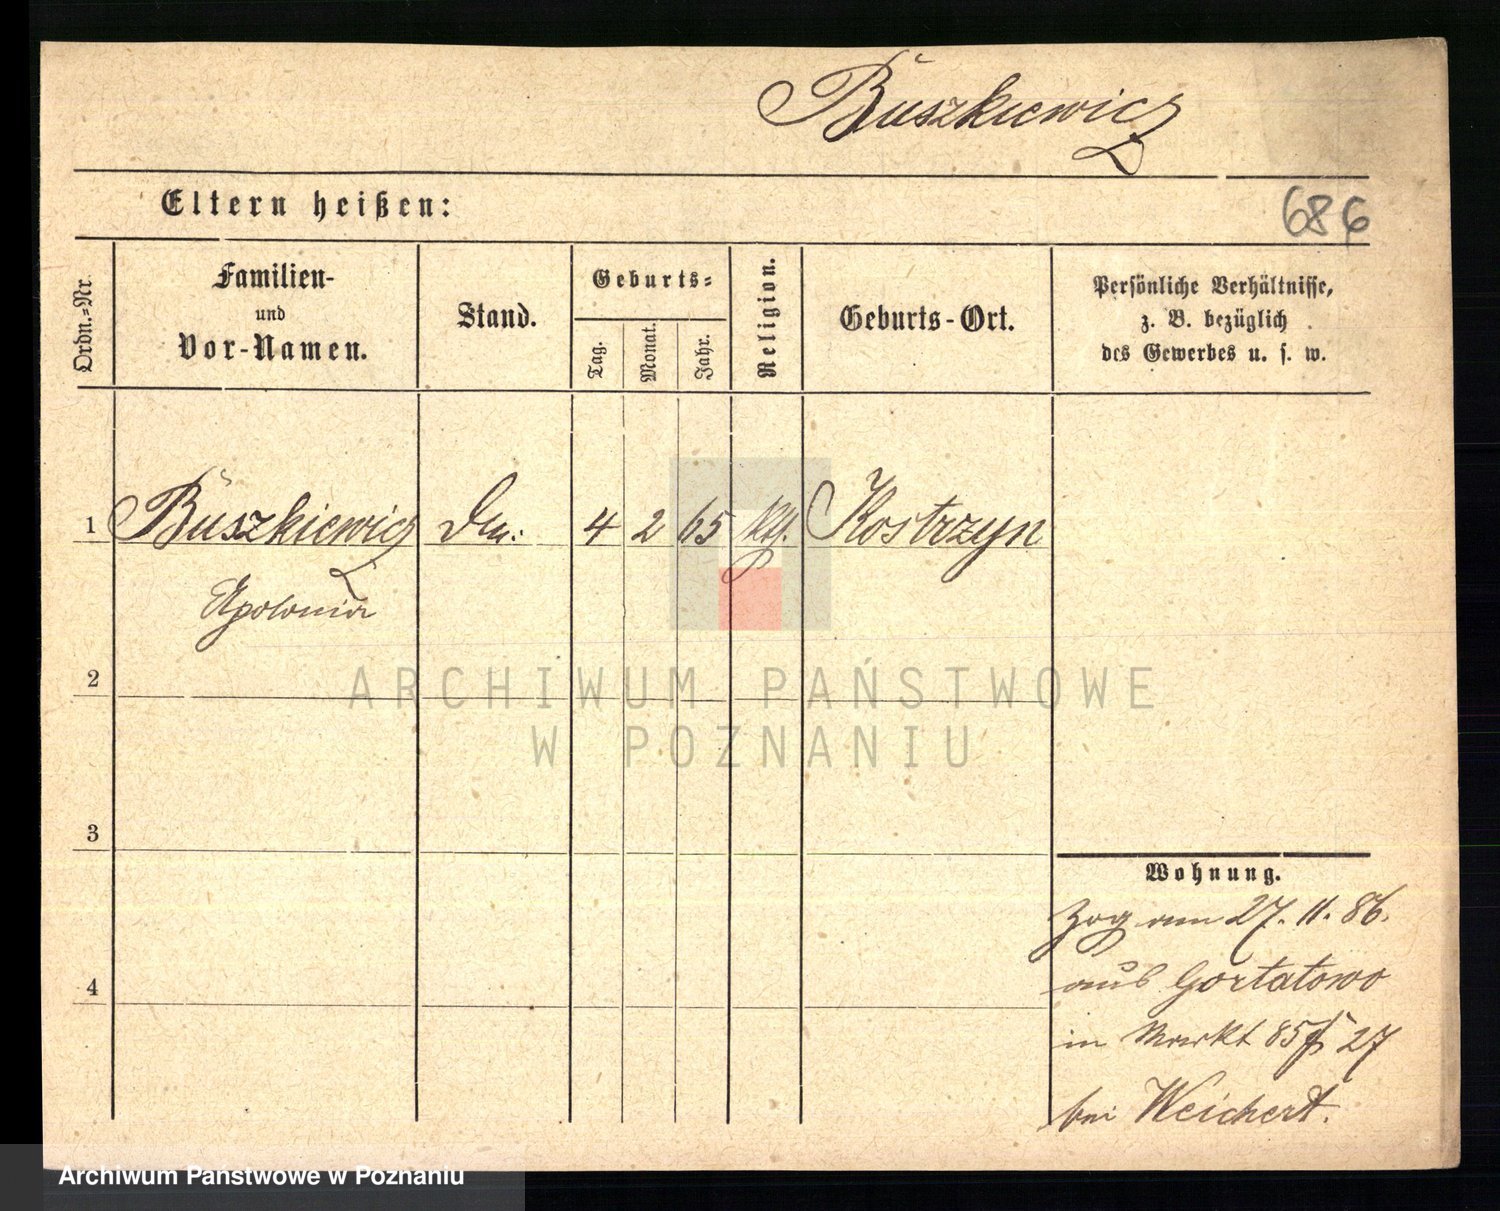 Buszkiewicz
Eltern heißen:
686
Ordn.-Nr.
Familien-
und
Vor-Namen.
Stand.
Geburts-
Tag.
Monat.
Jahr.
Religion.
Geburts-Ort.
Persönliche Verhältnisse,
z. B. bezüglich
des Gewerbes u. s. w.
1 Buszkiewicz 4 2 65 kth. Kostrzyn
Apolonia
2
3
4
Wohnung.
Zog am 27. 11. 86.
aus Gortatowo
in Markt 85 27
bei Weichert.
ARCHIWUM PAŃSTWOWE
W POZNANIU
Archiwum Państwowe w Poznaniu